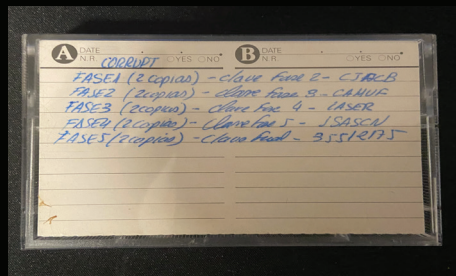 A DATE N.R. YES NO B DATE N.R. YES NO
CORRUPT
FASE1 (2 copias) - clave Fase 2 -
FASE2 (2 copias) - clave Fase 3 - CAHUF
FASE3 (2 copias) - clave Fase 4 - LASER
FASE4 (2 copias) - clave Fase 5 - ISASCN
FASE5 (2 copias) - clave Final - 35512175